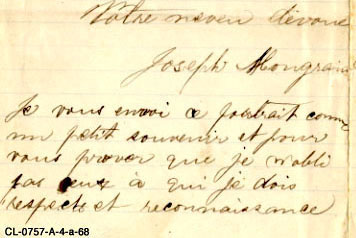 Votre neveu dévoué
Joseph Mongrain
Je vous envoi ce portrait comm
un petit souvenir et pour
vous prover que je n'obli
pas ceux à qui je dois
respect et reconnaissance
CL-0757-A-4-a-68